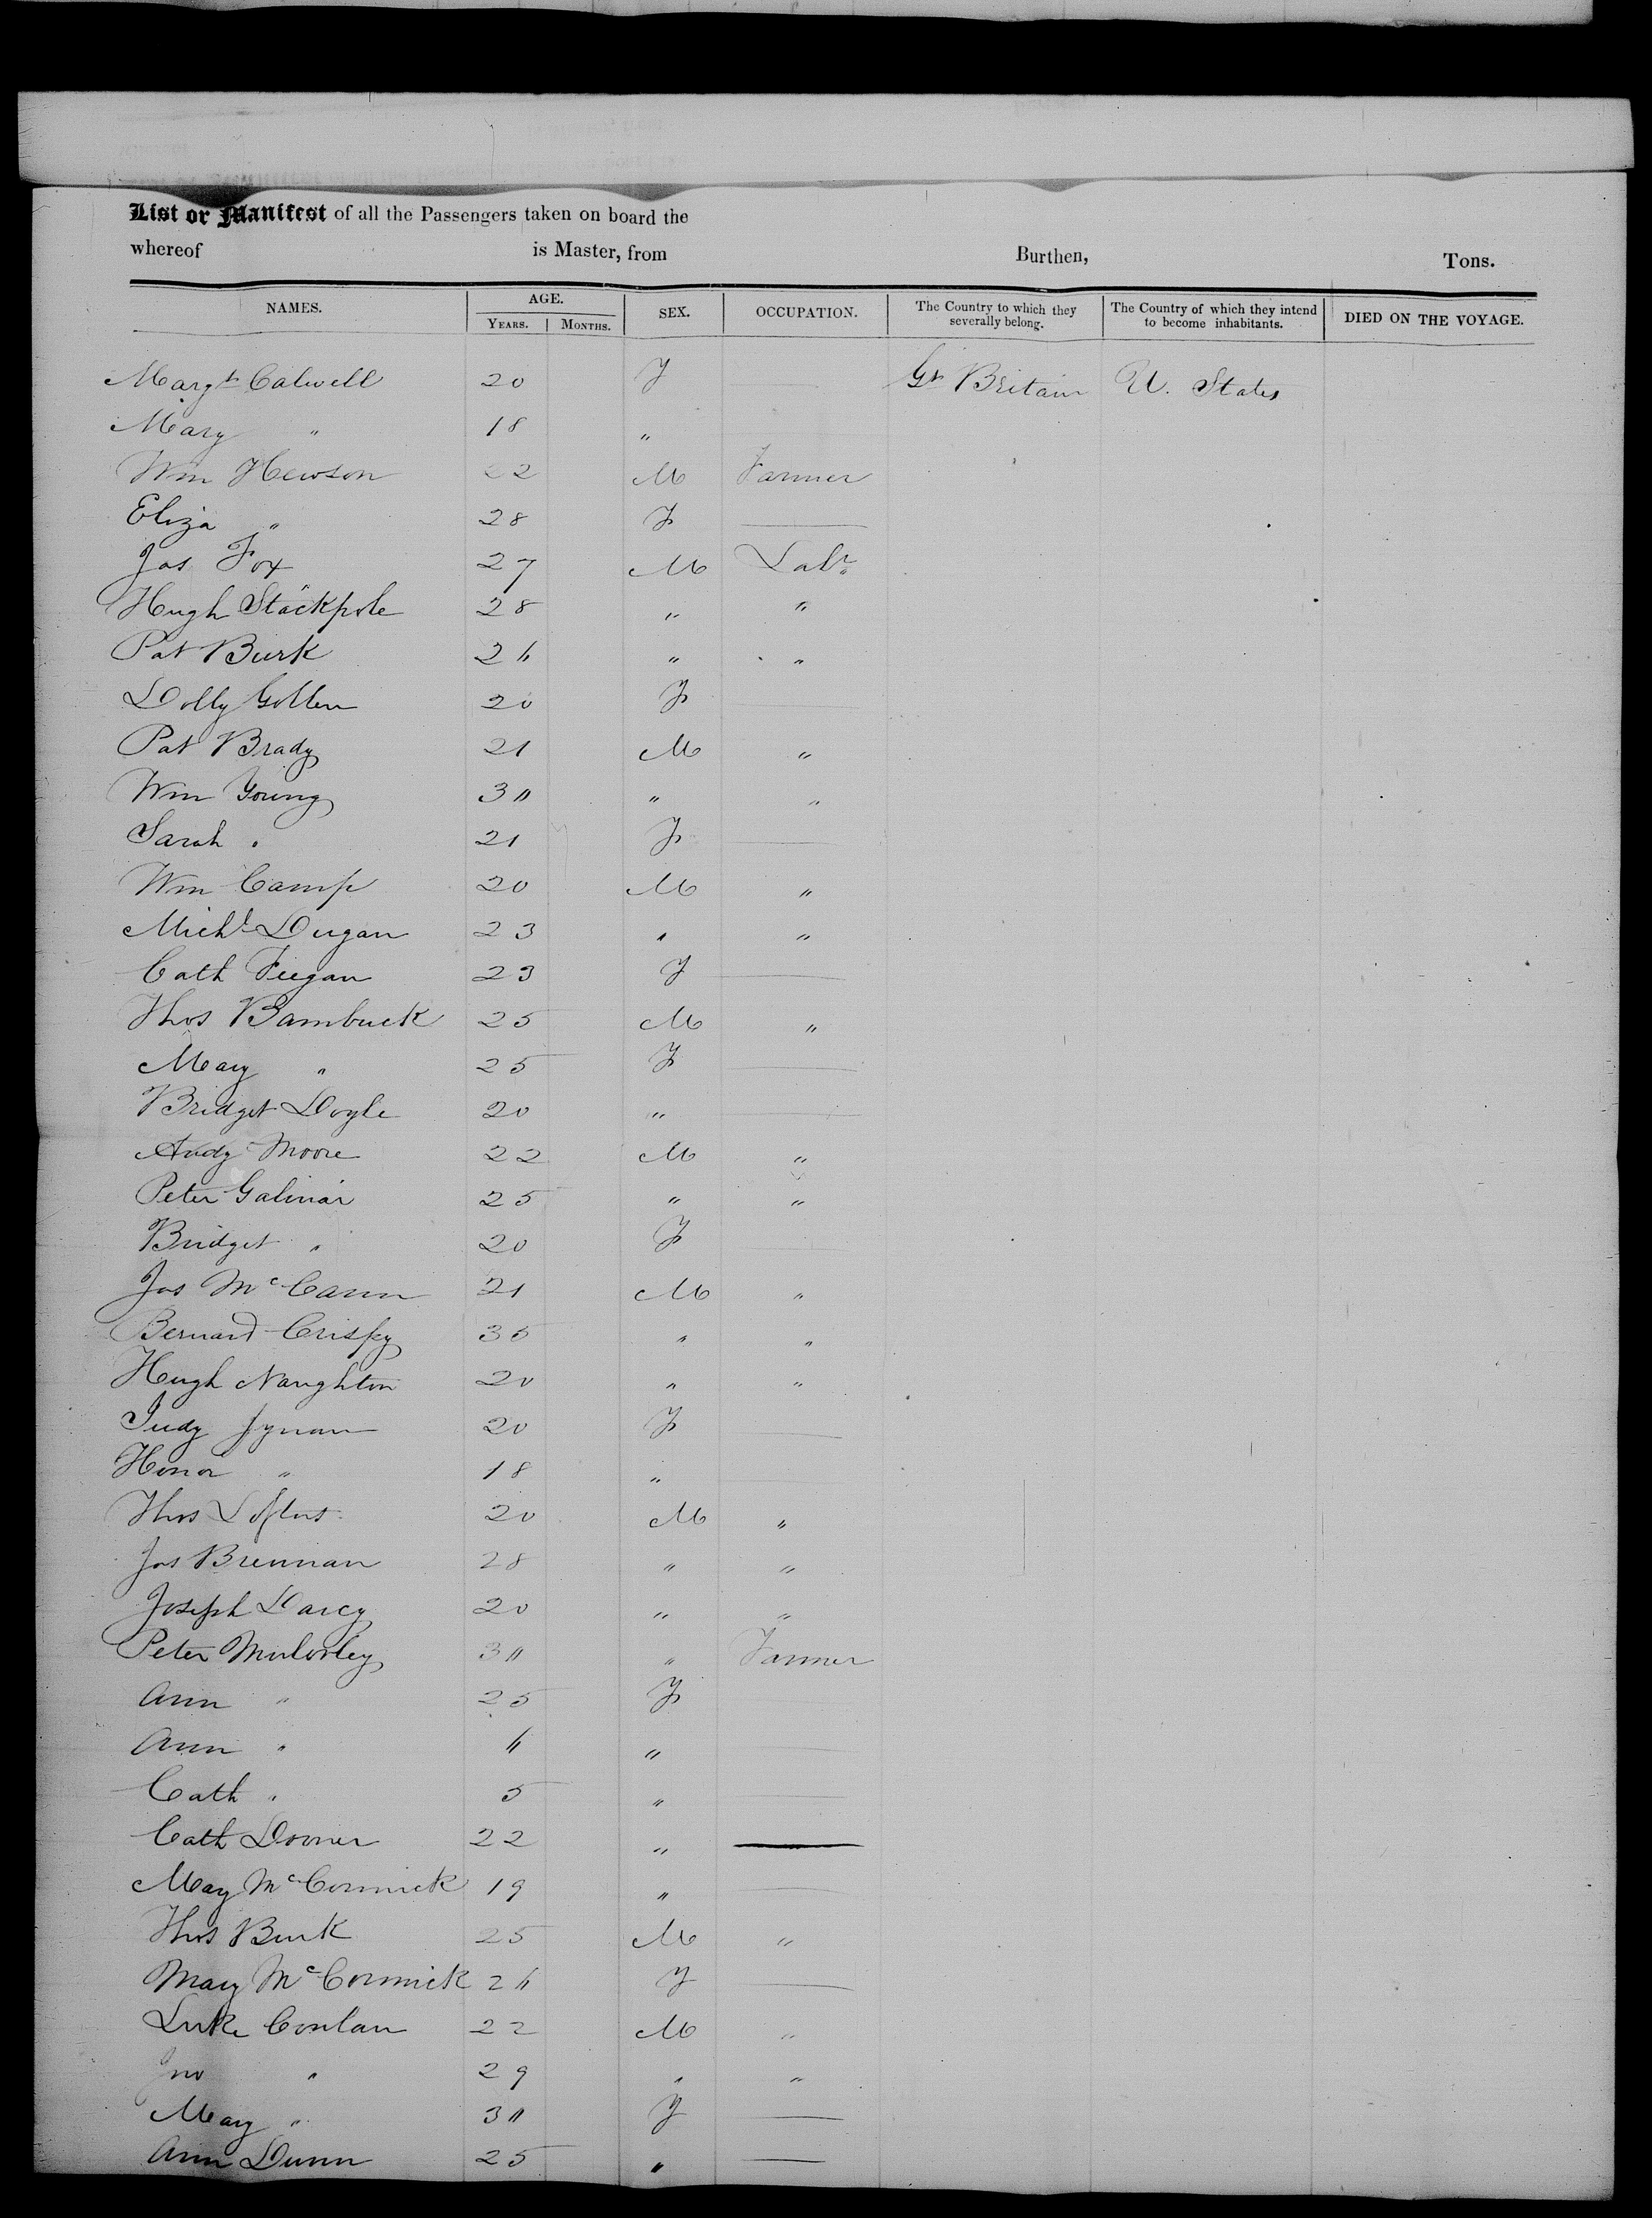 List or Manifest of all the Passengers taken on board the
whereof is Master, from Burthen, Tons.
NAMES. AGE. YEARS. MONTHS. SEX. OCCUPATION. The Country to which they severally belong. The Country of which they intend to become inhabitants. DIED ON THE VOYAGE.
Margt Calwell 20 F Gt Britain U. States
Mary " 18 "
Wm Hewson 22 M Farmer
Eliza " 28 F
Jas Fox 27 M Labr
Hugh Stackpole 28 " "
Pat Burk 24 " "
Dolly 20 F
Pat Brady 21 M "
Wm Young 30 " "
Sarah " 21 F
Wm Camp 20 M "
Michl Dugan 23 " "
Cath Feegan 23 F
Thos Bambuck 25 M "
Mary " 25 F
Bridget Doyle 20 "
Andy Moore 22 M "
Peter Galinar 25 " "
Bridget " 20 F
Jas McCann 21 M "
Bernard Crispy 35 " "
Hugh Naughton 20 " "
Judy Fynan 20 F
Honor " 18 "
Thos Loftus 20 M "
Jas Brennan 28 " "
Joseph Darcy 20 " "
Peter 30 " Farmer
Ann " 25 F
Ann " "
Cath " 5 "
Cath Dooner 22 "
Mary McCormick 19 "
Thos Burk 25 M "
Mary McCormick 24 F
Luke Conlan 22 M "
Jno " 29 " "
Mary " 30 F
Ann Dunn 25 "